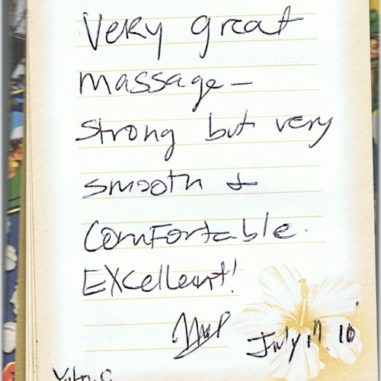 Very great
massage—
strong but very
smooth &
comfortable.
Excellent!
July 17 10'